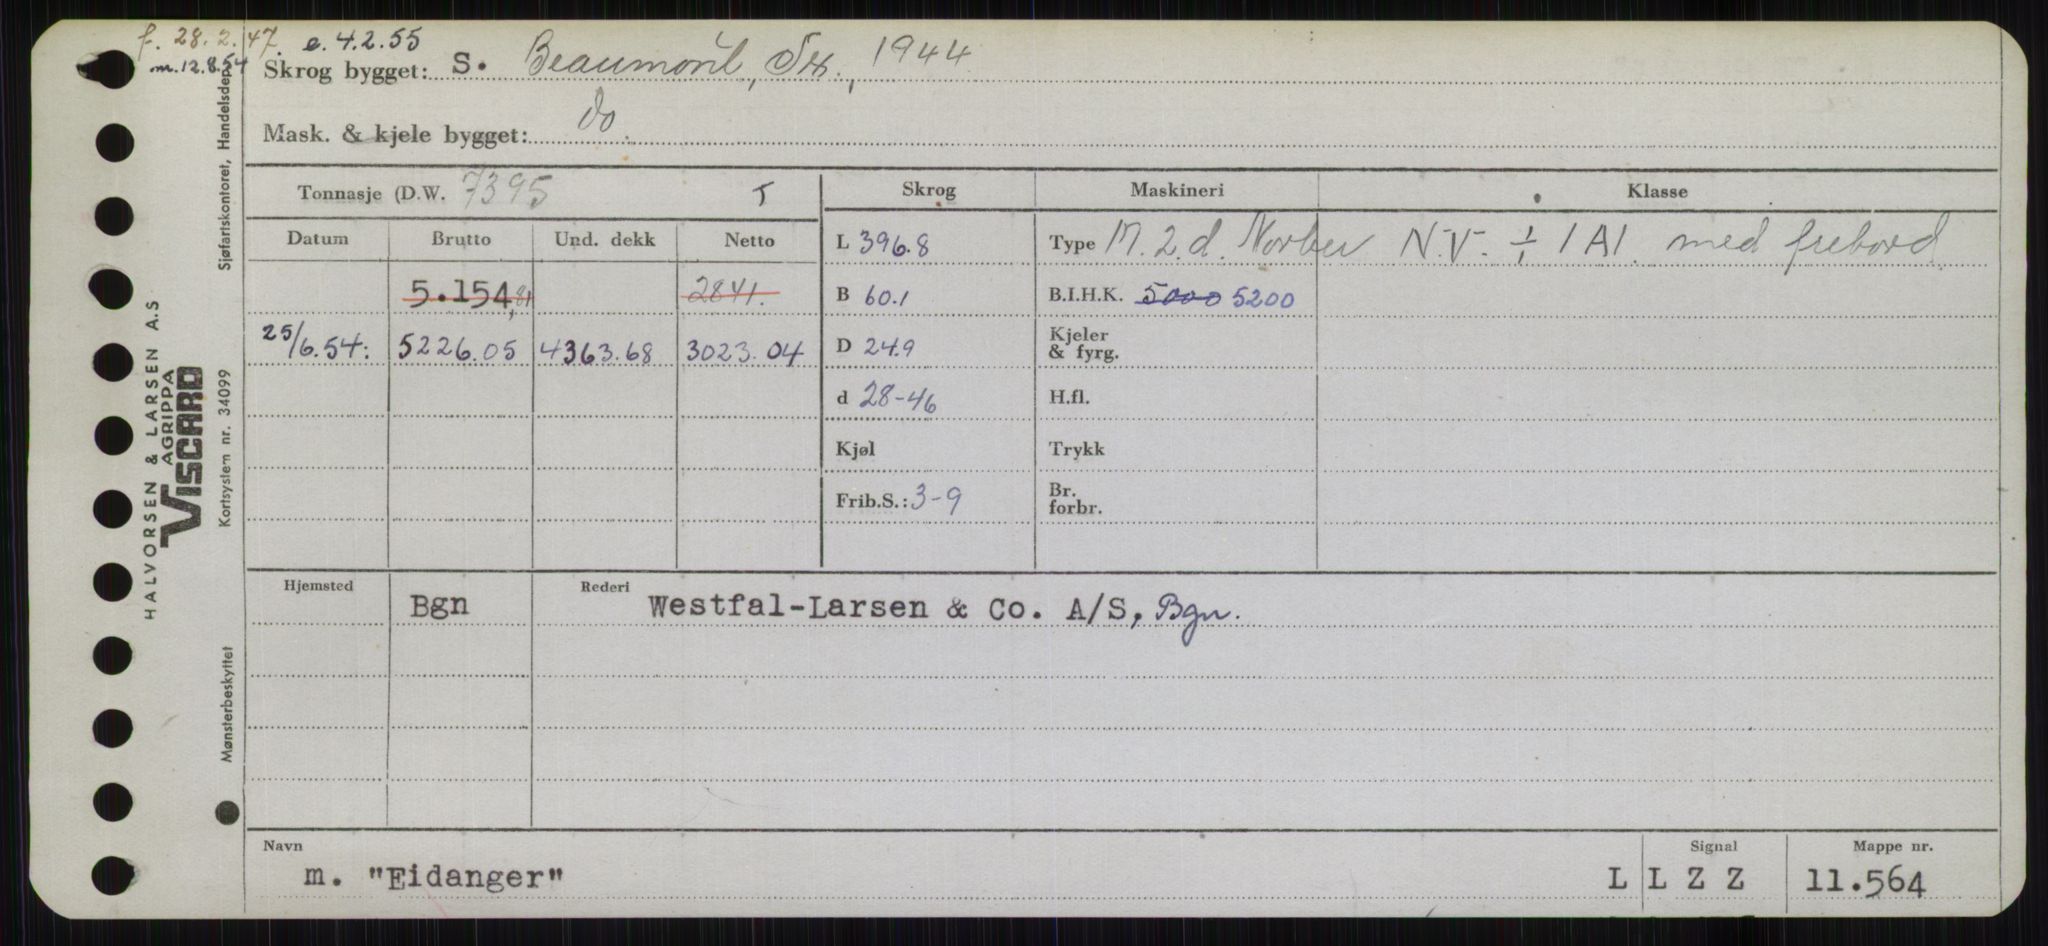 f. 28.2.47. e. 4.2.55
m. 12.8.54
Skrog bygget: S. Beaumont, Tex., 1944
Mask. & kjele bygget: do.
Tonnasje (D.W. 7395 T
Skrog Maskineri Klasse
Datum Brutto Und. dekk Netto
L 396.8 Type M. 2.d. N.V. ÷ 1A1. med fribord
5.154,81 2841.
B 60.1 B.I.H.K. 5000 5200
25/6.54: 5226.05 4363.68 3023.04
D 24.9 Kjeler
& fyrg.
d 28-46 H.fl.
Kjøl Trykk
Frib.S.: 3-9 Br.
forbr.
Hjemsted Rederi
Bgn Westfal-Larsen & Co. A/S, Bgn.
Navn Signal Mappe nr.
m. "Eidanger" L L Z Z 11.564
Sjøfartskontoret, Handelsdep.
HALVORSEN & LARSEN A.S
AGRIPPA
VISCARD
Kortsystem nr. 34099
Mønsterbeskyttet